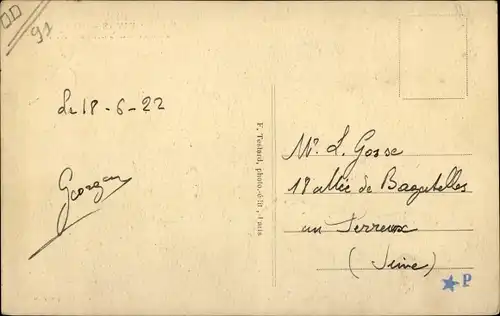 91
Le 18-6-22
Georges
F. Testard, photo.-édit., Paris
Mr. L. Gosse
18 allée de Bagatelles
au Perreux
(Seine)
★ P